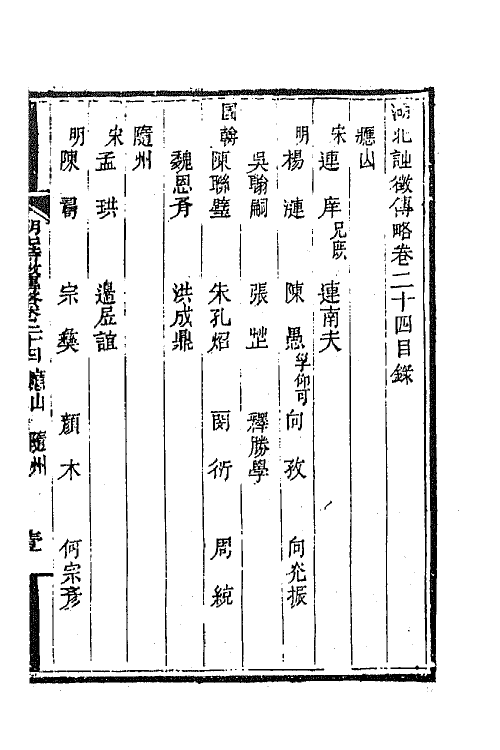 湖北詩徵傳略卷二十四目錄
應山
宋 連庠 兄庶 連南夫
明 楊漣 陳愚 字仰可 向孜 向兆振
吳翰嗣 張堃 釋勝學
國朝 陳聯璧 朱孔炤 閔衍 周統
魏恩育 洪成鼎
隨州
宋 孟珙 邊居誼
明 陳 宗彝 顏木 何宗彥
湖北詩徵傳略卷二十四 應山 隨州 壹